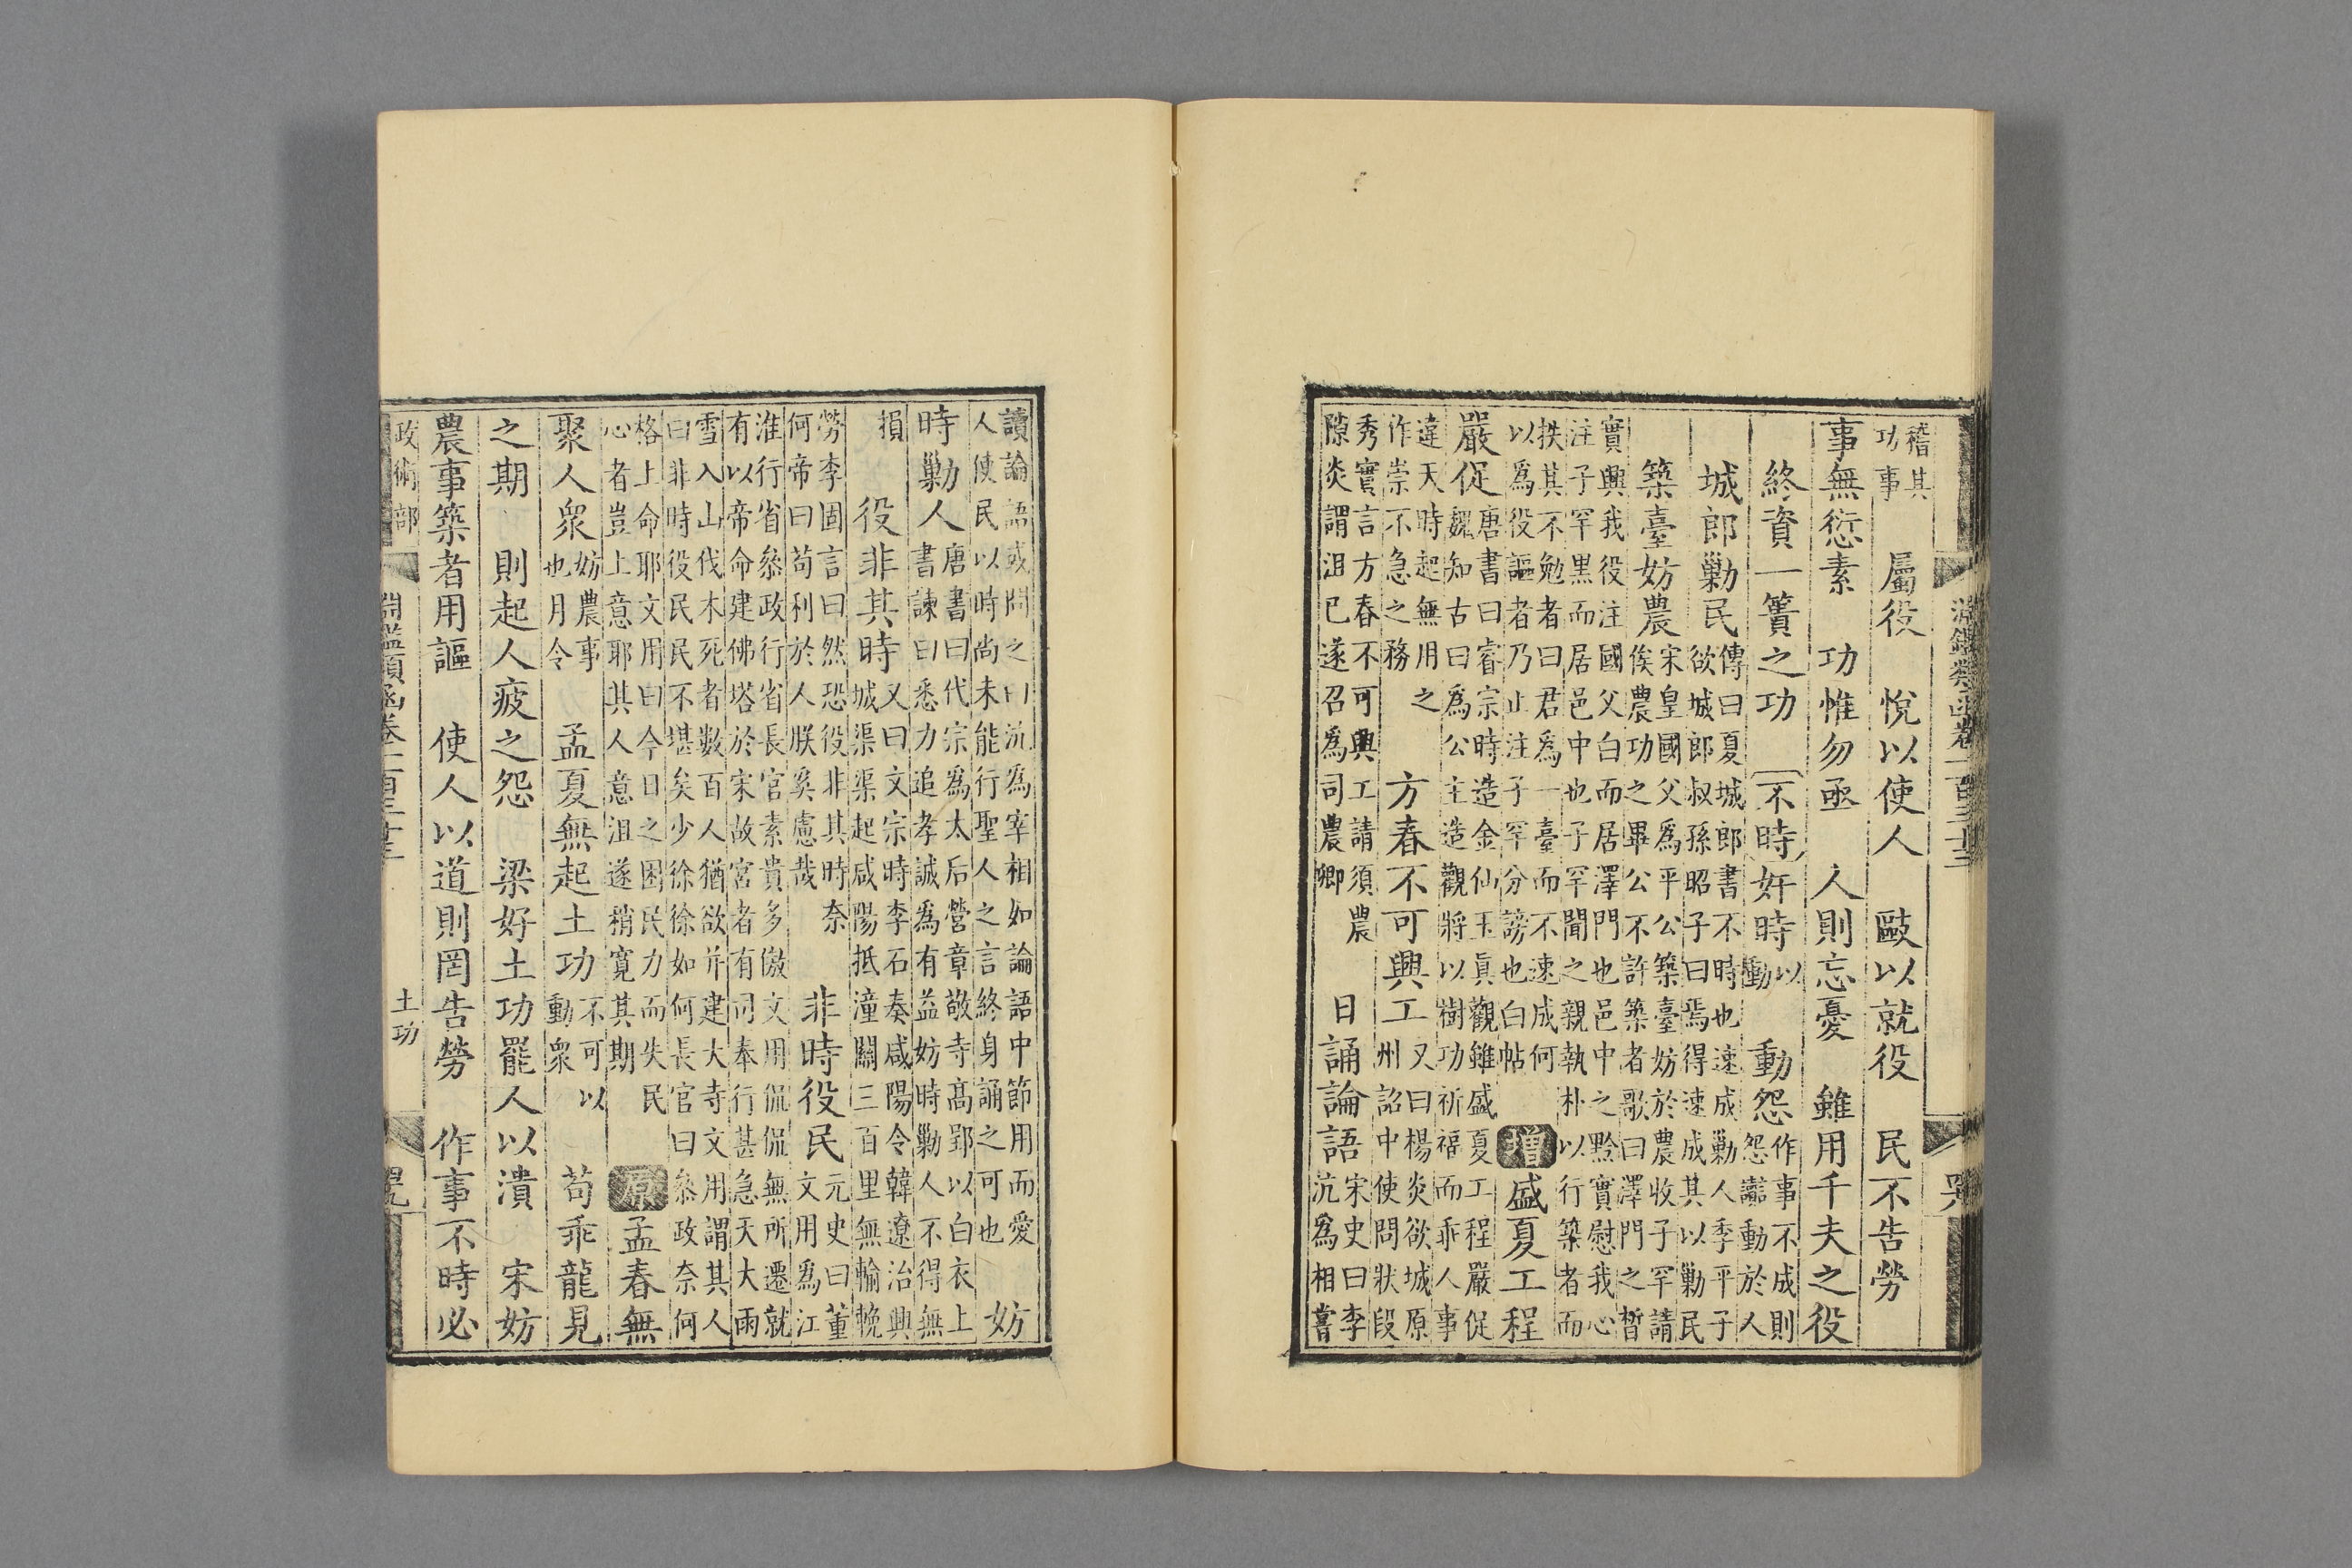 稽其
功事
屬役　悅以使人　敺以就役　民不告勞
事無愆素　功惟勿亟　人則忘憂　雖用千夫之役
終資一簣之功　不時　奸時
以
動
動怨
作事不成則
怨讟動於人
城郎勦民
傳曰夏城郎書不時也速成勦人季平子
欲城郎叔孫昭子曰焉得速成其以勦民
築臺妨農
宋皇國父爲平公築臺妨於農收子罕請
俟農功之畢公不許築者歌曰澤門之晳
實興我役注國父白而居澤門也邑中之黔實慰我心
注子罕黑而居邑中也子罕聞之親執朴以行築者而
抶其不勉者曰君爲一臺而不速成何
以爲役謳者乃止注子罕分謗也白帖
增盛夏工程
嚴促
唐書曰睿宗時造金仙玉眞觀雖盛夏工程嚴促
魏知古曰爲公主造觀將以樹功祈福而乖人事
違天時起無用之
作崇不急之務
方春不可興工
又曰楊炎欲城原
州詔中使問狀段
秀實言方春不可興工請須農
隙炎謂沮已遂召爲司農卿
日誦論語
宋史曰李
沆爲相嘗
淵鑑類函卷一百三十三
讀論語或問之曰沆爲宰相如論語中節用而愛
人使民以時尚未能行聖人之言終身誦之可也
妨
時勦人
唐書曰代宗爲太后營章敬寺高郢以白衣上
書諫曰悉力追孝誠爲有益妨時勦人不得無
損
役非其時
又曰文宗時李石奏咸陽令韓遼治興
城渠渠起咸陽抵潼關三百里無輸輓
勞李固言曰然恐役非其時奈
何帝曰苟利於人朕奚慮哉
非時役民
元史曰董
文用爲江
淮行省叅政行省長官素貴多傲文用侃侃無所遷就
有以帝命建佛塔於宋故宮者有司奉行甚急天大雨
雪入山伐木死者數百人猶欲并建大寺文用謂其人
曰非時役民民不堪矣少徐徐如何長官曰叅政奈何
格上命耶文用曰今日之困民力而失民
心者豈上意耶其人意沮遂稍寬其期
原孟春無
聚人衆
妨農事
也月令
孟夏無起土功
不可以
動衆
苟乖龍見
之期　則起人疲之怨　梁好土功罷人以潰　宋妨
農事築者用謳　使人以道則罔告勞　作事不時必
政術部　淵鑑類函卷一百三十三　土功